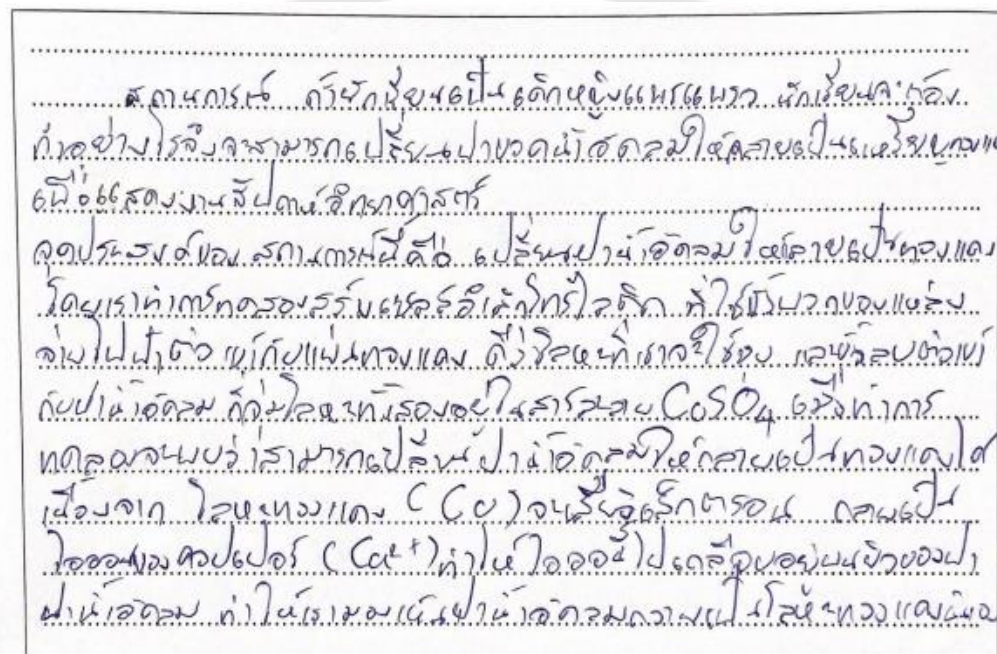 สถานการณ์ ถ้านักเรียนเป็นเด็กหญิงแพรแพรว นักเรียนจะต้อง
ทำอย่างไรจึงจะสามารถเปลี่ยนฝาขวดน้ำอัดลมให้กลายเป็นเหรียญทองแดง
เพื่อแสดงงานสัปดาห์วิทยาศาสตร์
จุดประสงค์ของสถานการณ์นี้คือ เปลี่ยนฝาน้ำอัดลมให้กลายเป็นทองแดง
โดยเราทำการทดลองสร้างเซลล์อิเล็กโทรไลติก ที่ใช้ขั้วบวกของแหล่ง
จ่ายไฟฟ้าต่อเข้ากับแผ่นทองแดง ซึ่งโลหะที่เราจะใช้ชุบ และขั้วลบต่อเข้า
กับฝาน้ำอัดลม ที่จุ่มโลหะทั้งสองอยู่ในสารละลาย CuSO4 เมื่อทำการ
ทดลองจะพบว่าสามารถเปลี่ยนฝาน้ำอัดลมให้กลายเป็นทองแดงได้
เนื่องจาก โลหะทองแดง (Cu) จะเสียอิเล็กตรอน กลายเป็น
ไอออนของคอปเปอร์ (Cu2+) ทำให้ไอออนนี้ไปเคลือบอยู่บนผิวของฝา
ฝาน้ำอัดลม ทำให้เรามองเห็นฝาน้ำอัดลมกลายเป็นโลหะทองแดง